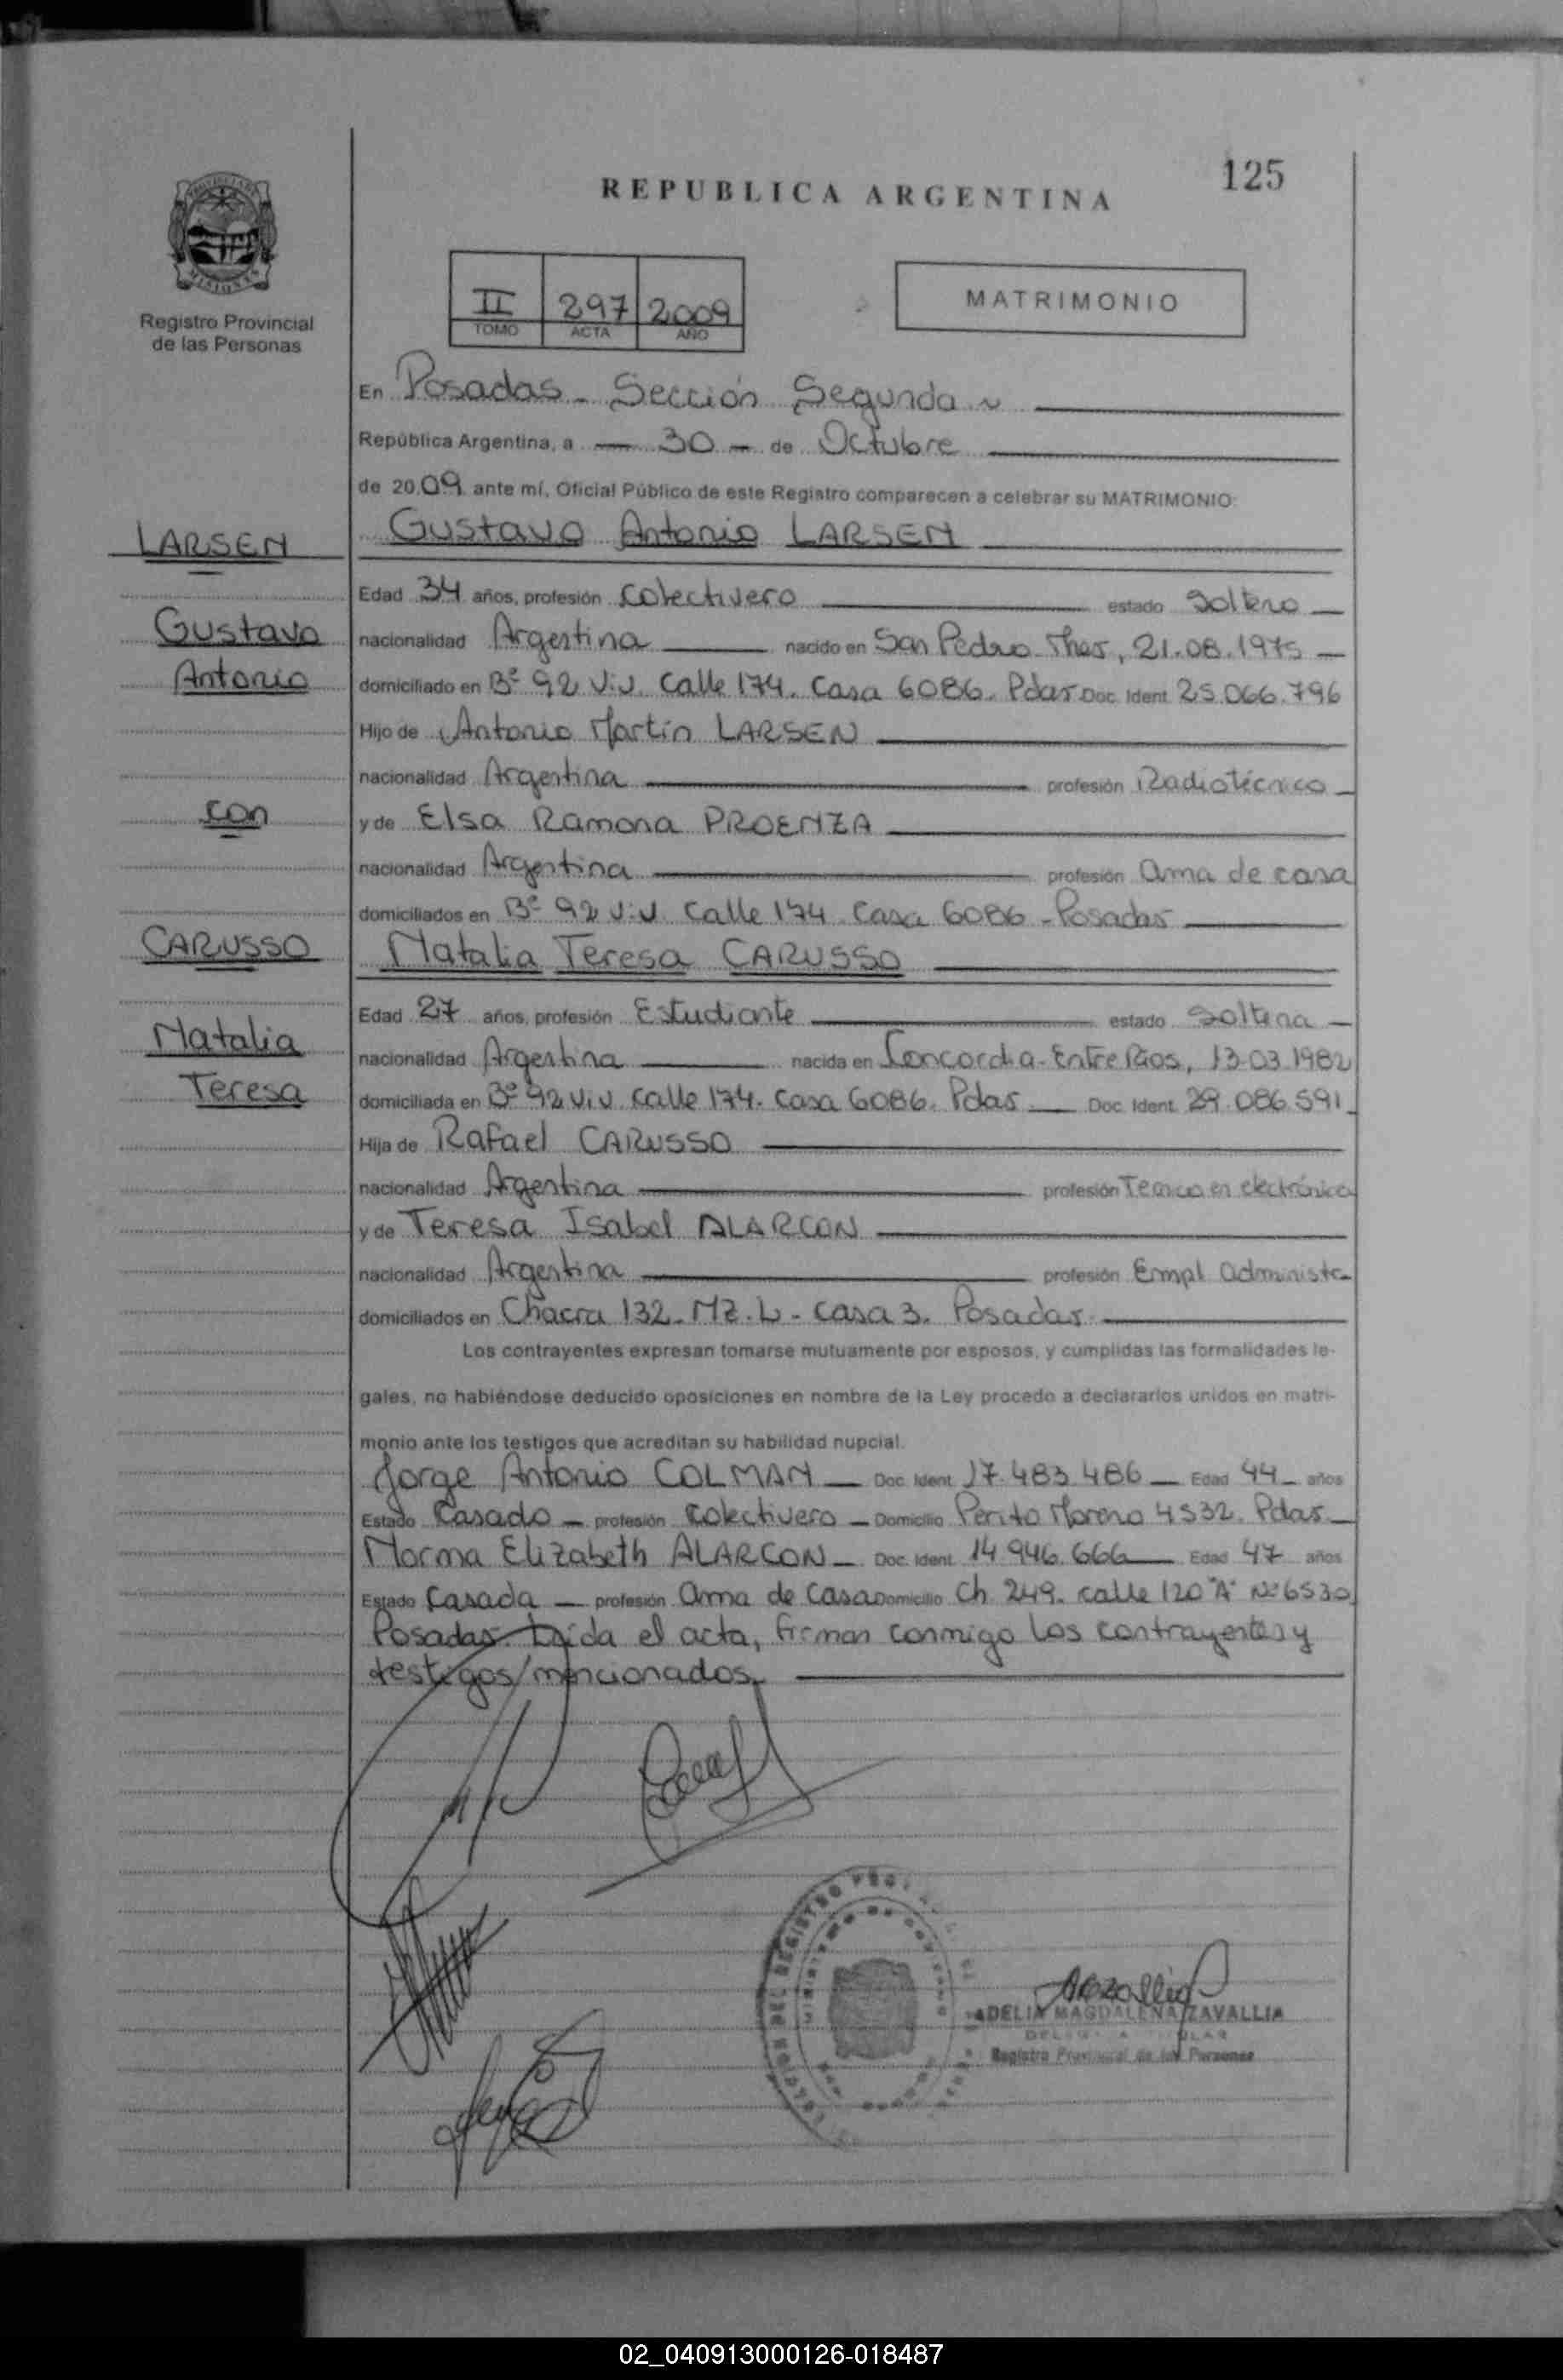 125
REPUBLICA ARGENTINA
II 297 2009
TOMO ACTA AÑO
MATRIMONIO
Registro Provincial
de las Personas
En Posadas - Sección Segunda
República Argentina, a 30 de Octubre
de 2009 ante mí, Oficial Público de este Registro comparecen a celebrar su MATRIMONIO:
LARSEN
Gustavo Antonio LARSEN
Edad 34 años, profesión Colectivero estado Soltero
Gustavo
nacionalidad Argentina nacido en San Pedro - Mnes, 21.08.1975
Antonio
domiciliado en Bº 92 Viv. Calle 174. Casa 6086. Pdas Doc. Ident. 25.066.796
Hijo de Antonio Martín LARSEN
nacionalidad Argentina profesión Radiotécnico
con
y de Elsa Ramona PROENZA
nacionalidad Argentina profesión ama de casa
domiciliados en Bº 92 Viv. Calle 174. Casa 6086 - Posadas
CARUSSO
Natalia Teresa CARUSSO
Edad 27 años, profesión Estudiante estado Soltera
Natalia
nacionalidad Argentina nacida en Concordia - Entre Rios, 13-03-1982
Teresa
domiciliada en Bº 92 Viv. Calle 174. Casa 6086. Pdas Doc. Ident. 29.086.591
Hija de Rafael CARUSSO
nacionalidad Argentina profesión Tecnico en electrónica
y de Teresa Isabel ALARCON
nacionalidad Argentina profesión Empl administ.
domiciliados en Chacra 132 - Mz. L - Casa 3. Posadas
Los contrayentes expresan tomarse mutuamente por esposos, y cumplidas las formalidades le-
gales, no habiéndose deducido oposiciones en nombre de la Ley procedo a declararlos unidos en matri-
monio ante los testigos que acreditan su habilidad nupcial.
Jorge Antonio COLMAN Doc. Ident. 17.483.486 Edad 44 años
Estado Casado profesión Colectivero Domicilio Perito Moreno 4532. Pdas
Norma Elizabeth ALARCON Doc. Ident. 14.946.666 Edad 47 años
Estado Casada profesión Ama de Casa Domicilio Ch. 249. calle 120 "A" Nº 6530
Posadas. Leída el acta, firman conmigo los contrayentes y
testigos mencionados
ADELIA MAGDALENA ZAVALLIA
Registro Provincial de las Personas
02_040913000126-018487